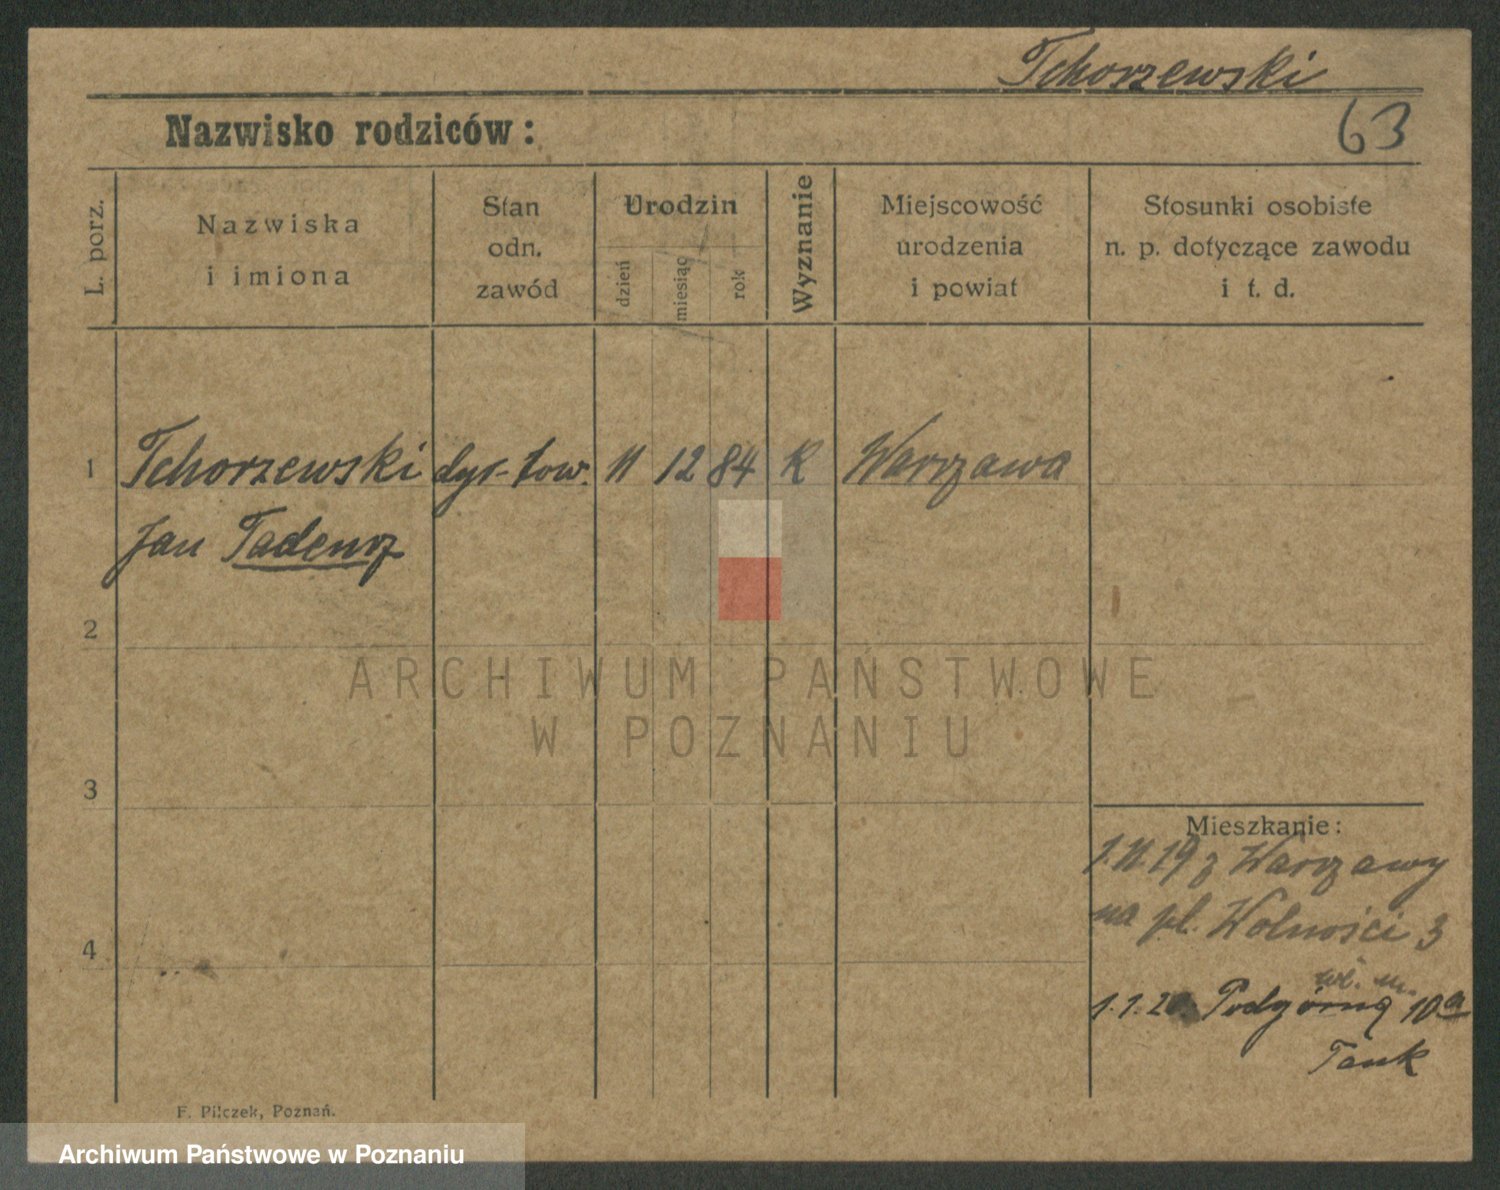 Tchorzewski
63
Nazwisko rodziców:
L. porz.
Nazwiska
i imiona
Stan
odn.
zawód
Urodzin
dzień
miesiąc
rok
Wyznanie
Miejscowość
urodzenia
i powiat
Stosunki osobiste
n. p. dotyczące zawodu
i t. d.
1 Tchorzewski dyr. tow. 11 12 84 K Warszawa
Jan Tadeusz
2
ARCHIWUM PAŃSTWOWE
W POZNANIU
3
Mieszkanie:
1.11.19 z Warszawy
na pl. Wolności 3
4
wł. m.
1.1.20. Podgórną 10a
F. Pilczek, Poznań.
Archiwum Państwowe w Poznaniu